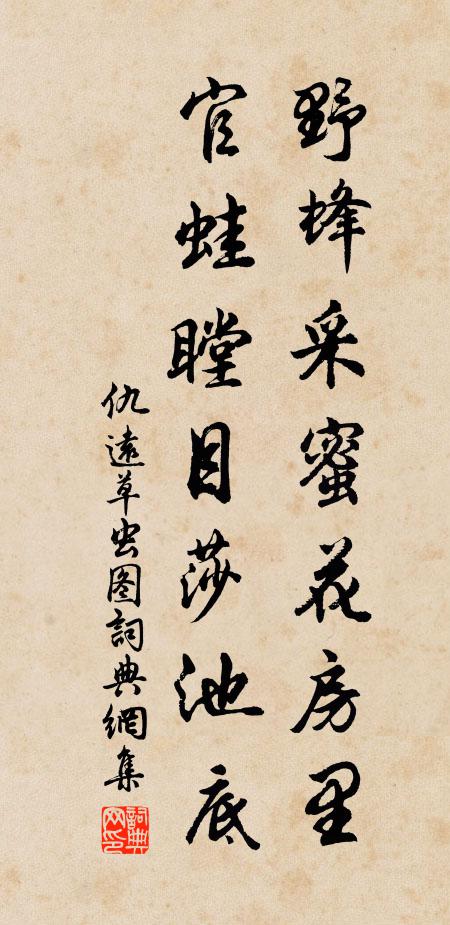 野蜂采蜜花房里
官蛙瞠目莎池底
仇遠草虫图詞典網集
詞典网印